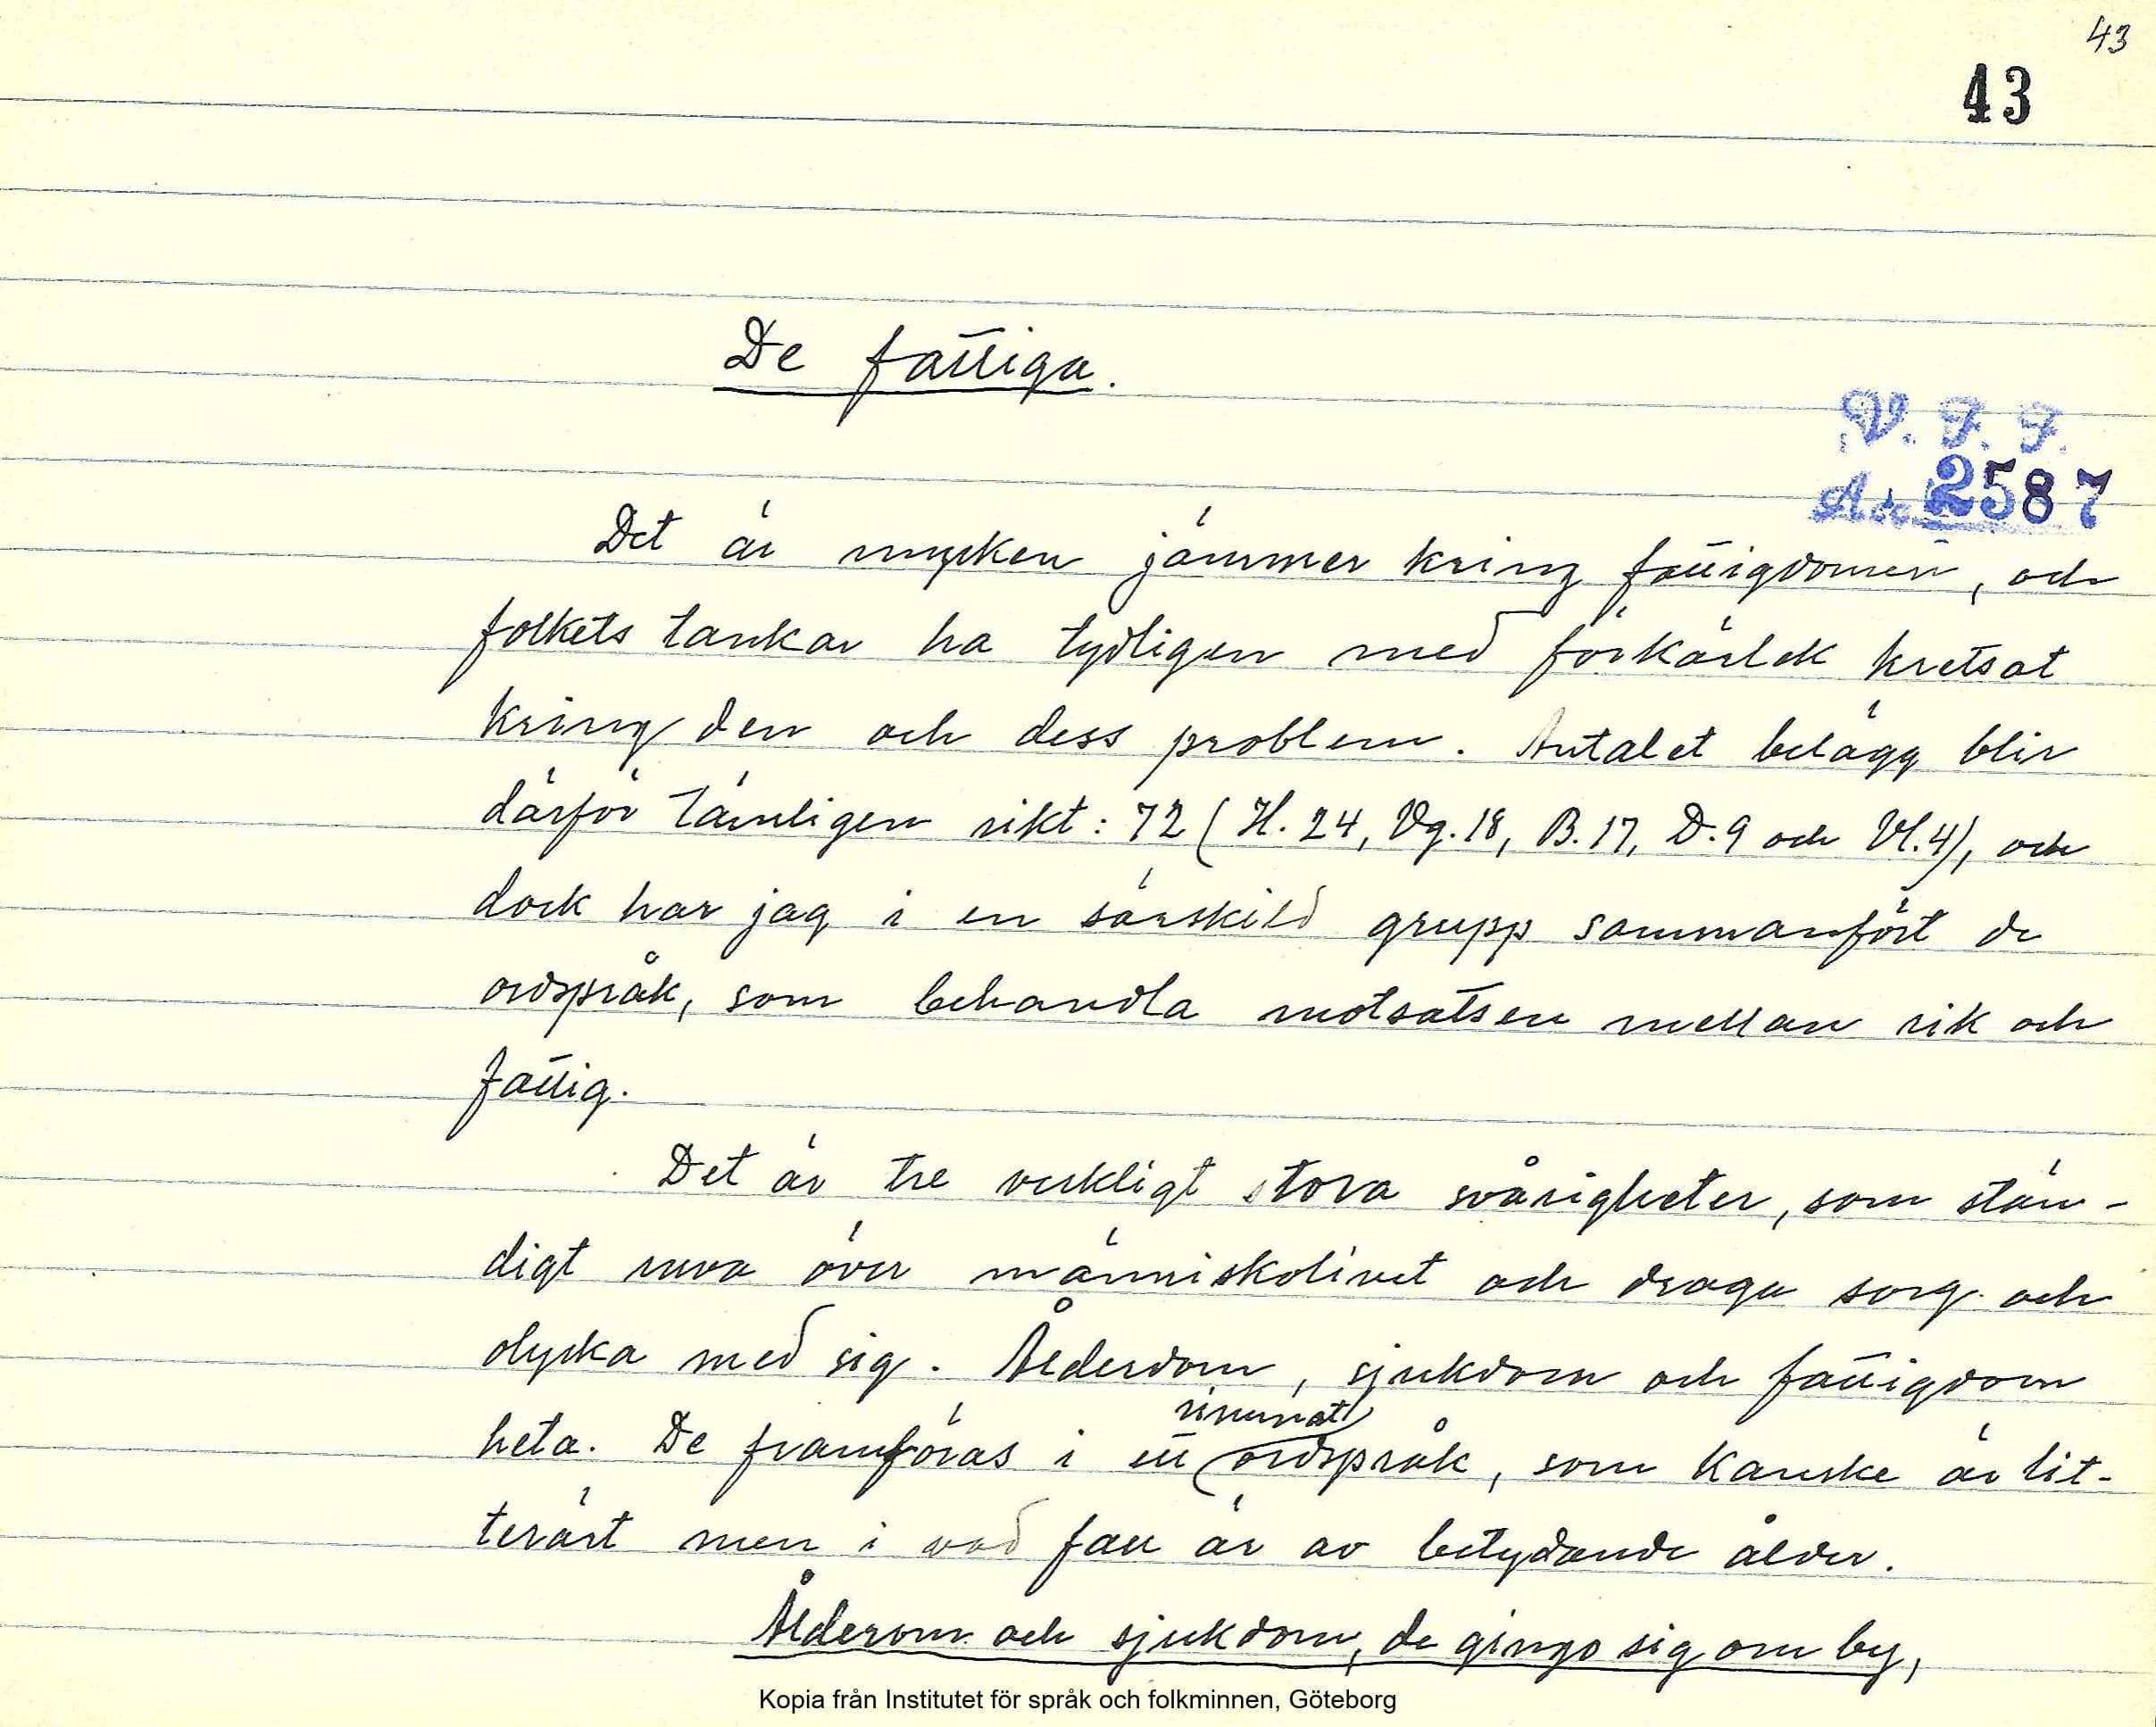 43
43
De fattiga.
V. F. F.
Acc. 2587
Det är mycken jämmer kring fattigdomen, och
folkets tankar ha tydligen med förkärlek kretsat
kring den och dess problem. Antalet belägg blir
därför tämligen rikt: 72 (H. 24, Vg. 18, B. 17, D. 9 och Vl. 4), och
dock har jag i en särskild grupp sammanfört de
ordspråk, som behandla motsatsen mellan rik och
fattig.
Det är tre verkligt stora svårigheter, som stän-
digt ruva över människolivet och draga sorg och
olycka med sig. Ålderdom, sjukdom och fattigdom
rimmat
heta. De framföras i ett ordspråk, som kanske är lit-
terärt men i vad fall är av betydande ålder.
Ålderom och sjukdom, de gingo sig om by,
Kopia från Institutet för språk och folkminnen, Göteborg